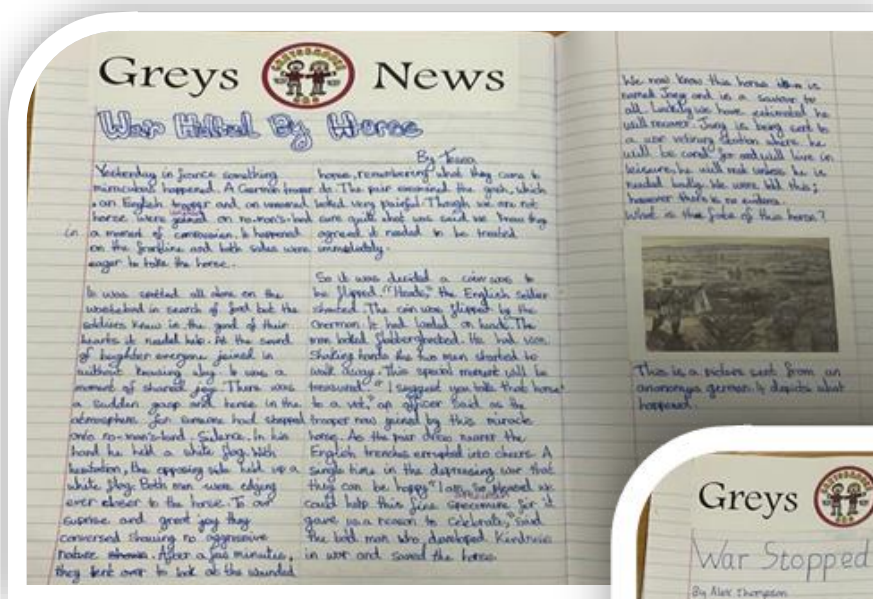 Greys News
War Halted By Horse
By Tessa
Yesterday in france something
miraculous happened. A German trooper
, an English trooper and an unarmed
horse were joined on no-man's-land
in a moment of compassion. It happened
on the frontline and both sides were
eager to take the horse.
It was spotted all alone on the
wasteland in search of food but the
soldiers knew in the good of their
hearts it needed help. At the sound
of laughter everyone joined in
without knowing why. It was a
moment of shared joy. There was
a sudden gasp and tense in the
atmosphere for someone had stepped
onto no-man's-land. Silence. In his
hand he held a white flag. With
hesitation, the opposing side held up a
white flag. Both men were edging
ever closer to the horse. To our
suprise and great joy they
conversed showing no aggressive
nature. After a few minutes,
they bent over to look at the wounded
horse, remembering what they came to
do. The pair examined the gash, which
looked very painful. Though we are not
sure quite what was said we know they
agreed it needed to be treated
immediately.
So it was decided a coin was to
be flipped. "Heads," the English soldier
shouted. The coin was flipped by the
German. It had landed on heads. The
man looked flabbergasted. He had won.
Shaking hands the two men started to
walk away. This special moment will be
treasured. "I suggest you take that horse
to a vet," an officer said as the
trooper now joined by this miracle
horse. As the pair drew nearer the
English trenches errupted into cheers. A
single time in the depressing war that
they can be happy. "I am so pleased we
could help this fine specimen for it
gave us a reason to celebrate," said
the bold man who developed kindness
in war and saved the horse.
We now know this horse is
named Joey and is a saviour to
all. Luckily we have estimated he
will recover. Joey is being sent to
a vetinary station where he
will be cared for and will live in
leisure, he will rest unless he is
needed badly. We were told this;
however there is no evidence.
What is the fate of this horse?
This is a picture sent from an
anonomys german. It depicts what
happened.
Greys
War Stopped
By Alex Thompson